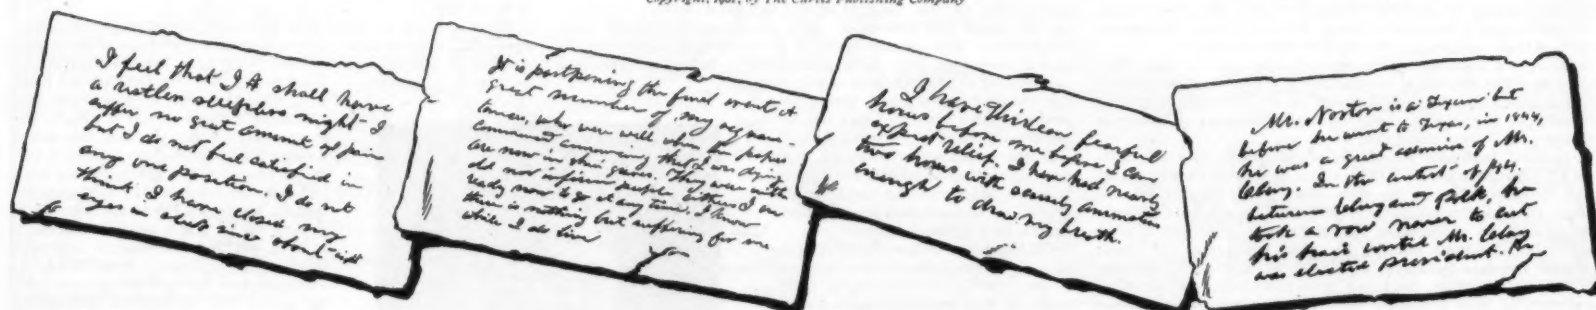 Copyright, by The Curtis Publishing Company
I feel that I shall have
a restless sleepless night I
suffer no great amount of pain
but I do not feel satisfied in
any one position. I do not
think I have closed my
eyes in sleep since about eight
It is postponing the final event. A
great number of my acquain-
tances, who were well when the papers
commenced announcing that I was dying
are now in their graves. They were neither
old nor infirm people either. I am
ready now to go at any time. I know
there is nothing but suffering for me
while I do live
I have thirteen fearful
hours before me before I can
expect relief. I have had nearly
two hours with scarcely animation
enough to draw my breath.
Mr. Norton is a Texan but
before he went to Texas, in 1844,
he was a great admirer of Mr.
Clay. In the contest of /44,
between Clay and Polk, he
took a vow never to cut
his hair until Mr. Clay
was elected President. He